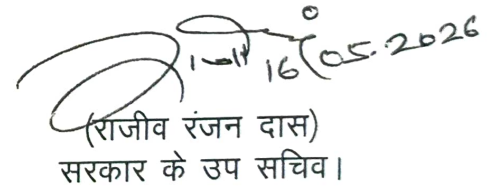 16/05.2026
(राजीव रंजन दास)
सरकार के उप सचिव।